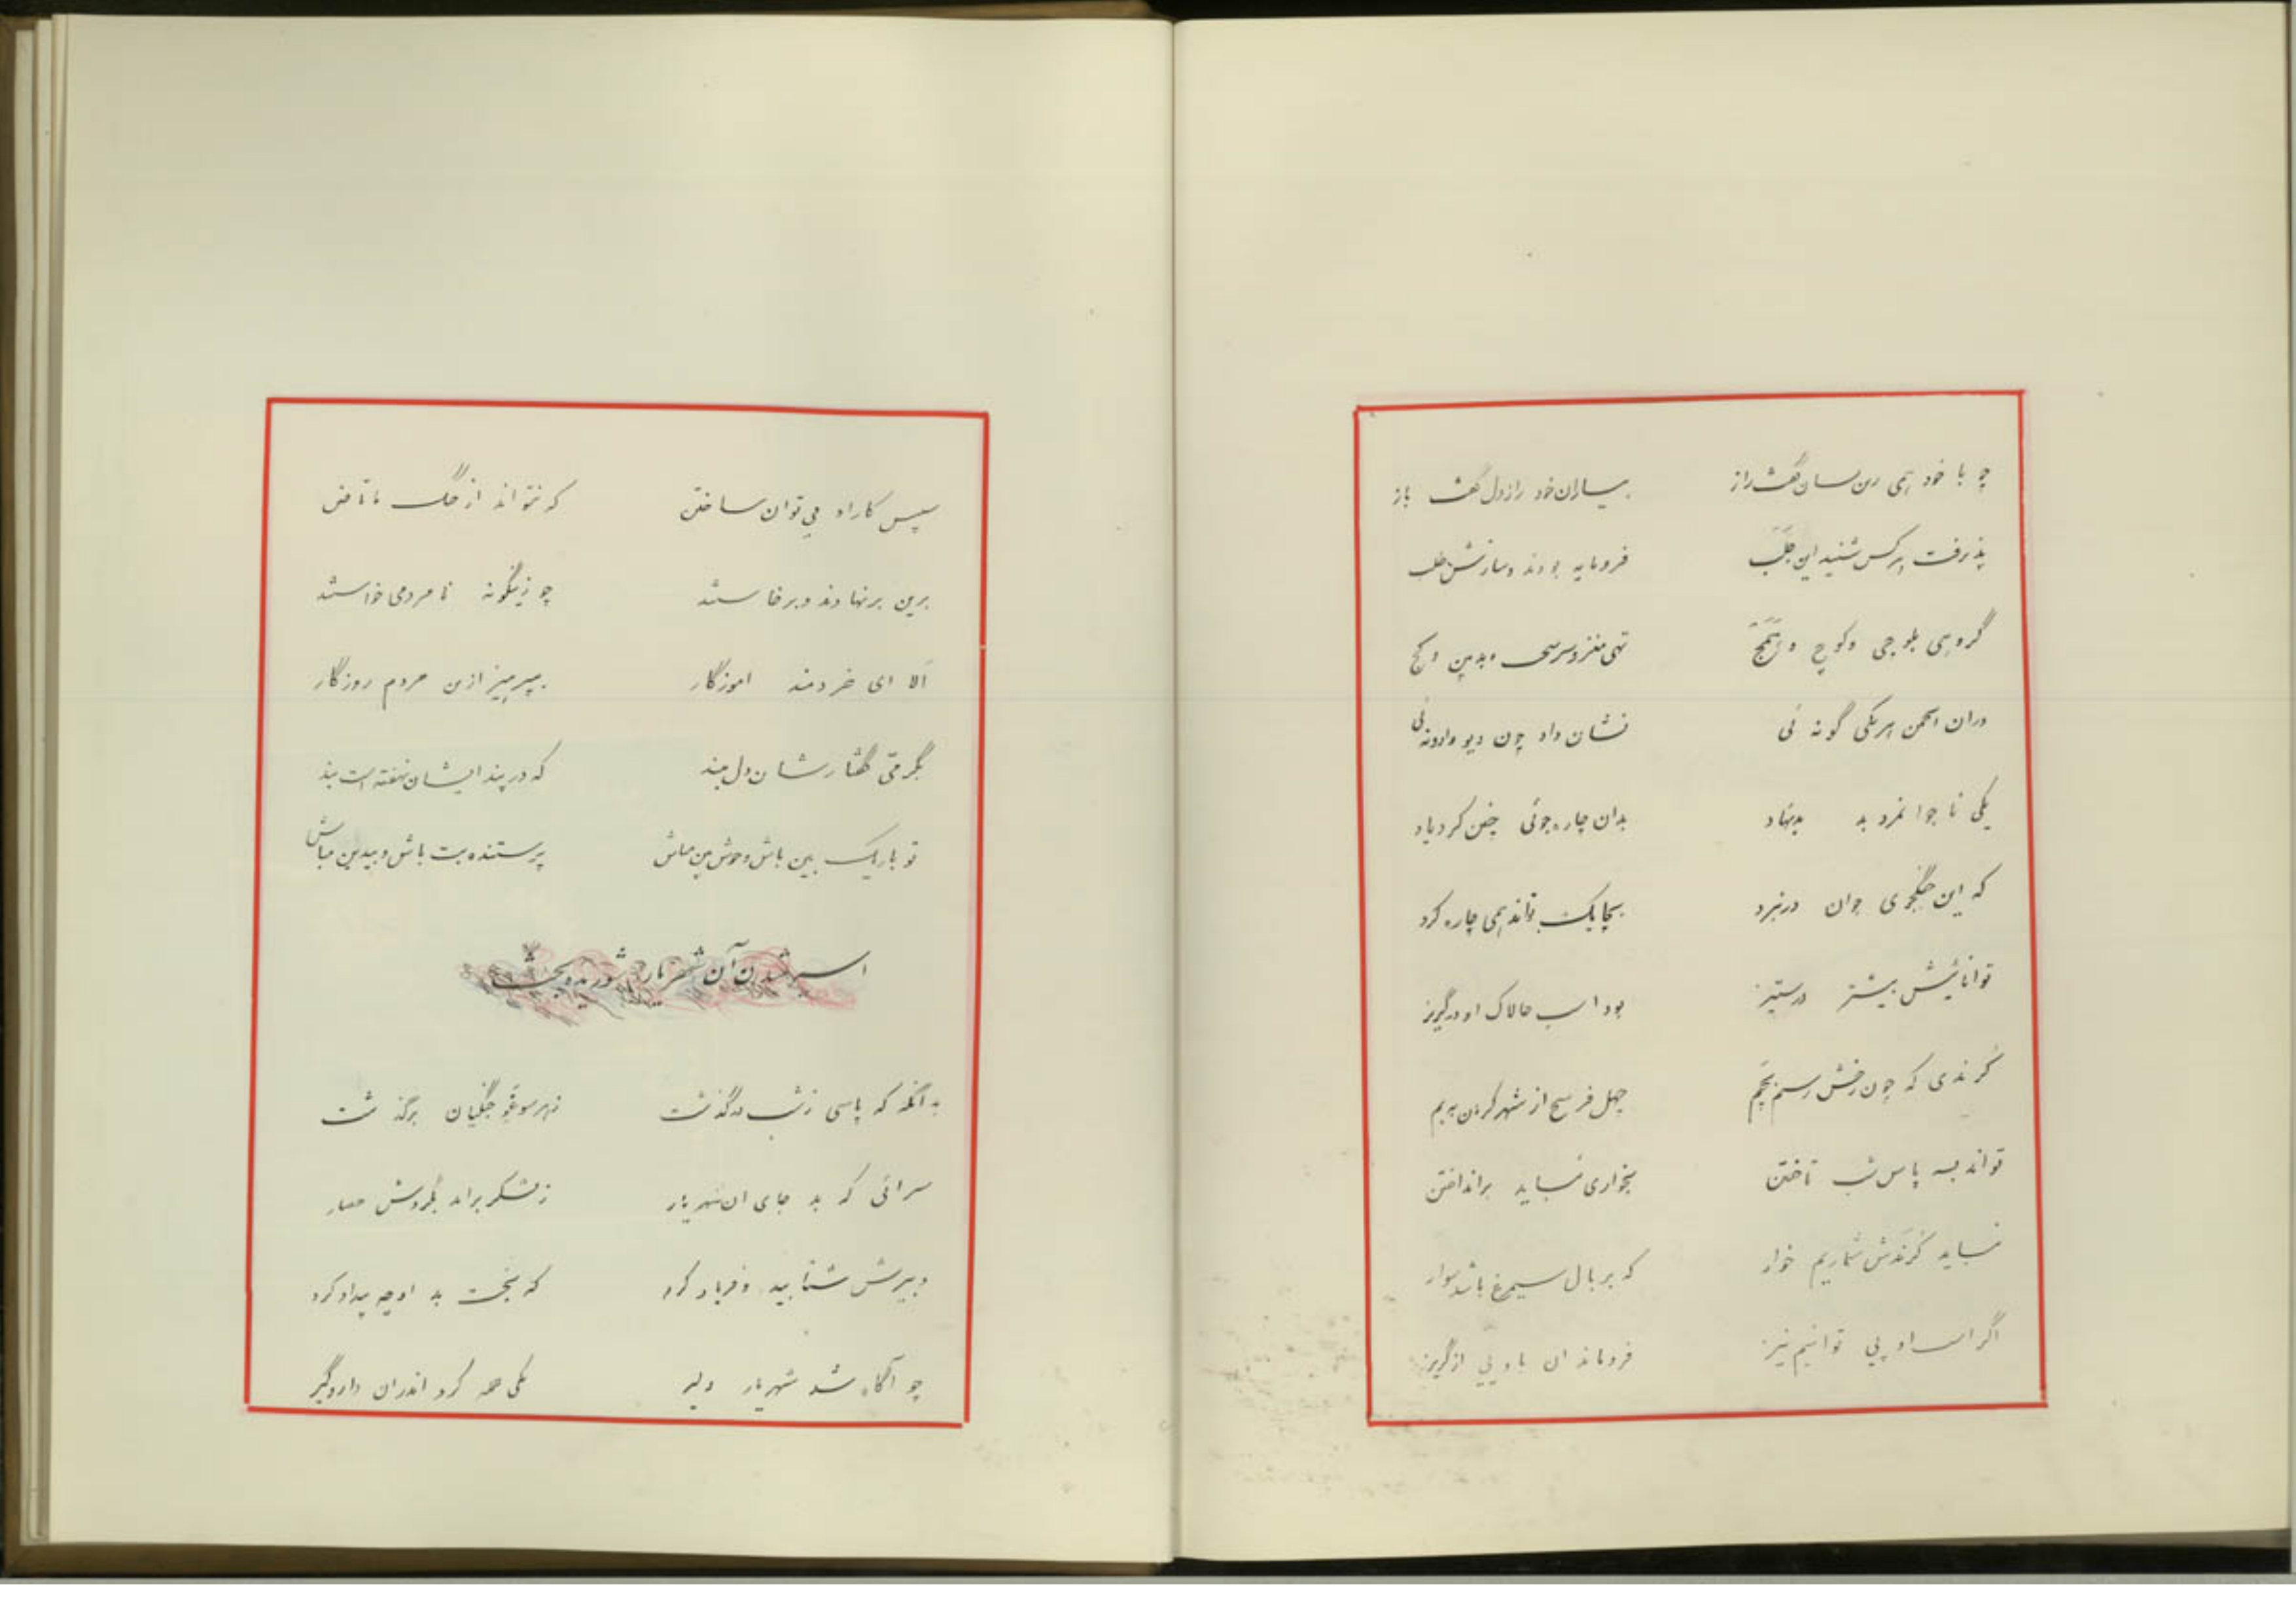 چو با خود همی زین سان گفت راز بیاران خود راز دل گفت باز
پذیرفت هرکس شنید این جلب فرومایه بودند و سازش طلب
گروهی بلوچی و کوچ و همج تهی مغز و بیدین و کج
دران انجمن هریکی گونه ئی نشان داد چون دیو وارونه ئی
یکی ناجوانمرد بد بدنهاد بدان چاره جوئی چنین کرد یاد
که این جنگجوی جوان در نبرد بچابک تواند همی چاره کرد
توانائیش بیشتر در ستیز بود اسب چالاک او در گریز
کرندی که چون رخش رستم بچم چهل فرسخ از شهر کرمان به بم
تواند بسه پاس شب تاختن بخواری نباید برانداختن
نباید کرندش شماریم خوار که بر بال سیمرغ باشد سوار
اگر اسب او پی توانیم نیز فروماند ان باد پی از گریز
سپس کار او می توان ساختن که نتواند از جنگ ما تافتن
برین برنهادند و برخاستند چو زینگونه نامردمی خواستند
الا ای خردمند اموزگار بپرهیز ازین مردم روزگار
بگرمی گفتارشان دل مبند که در پند ایشان نهفته است بند
تو باریک بین باش و خوش بین مباش پرستنده بت باش و بیدین مباش
اسیر شدن آن شهریار شوریده بخت
بدانگه که پاسی ز شب درگذشت ز هر سو غو جنگیان برگذشت
سرائی که بد جای ان شهریار ز لشکر براند بگردش حصار
دبیرش شتابید و فریاد کرد که بخت بد او چه بیداد کرد
چو آگاه شد شهریار دلیر یکی حمله کرد اندران داروگیر